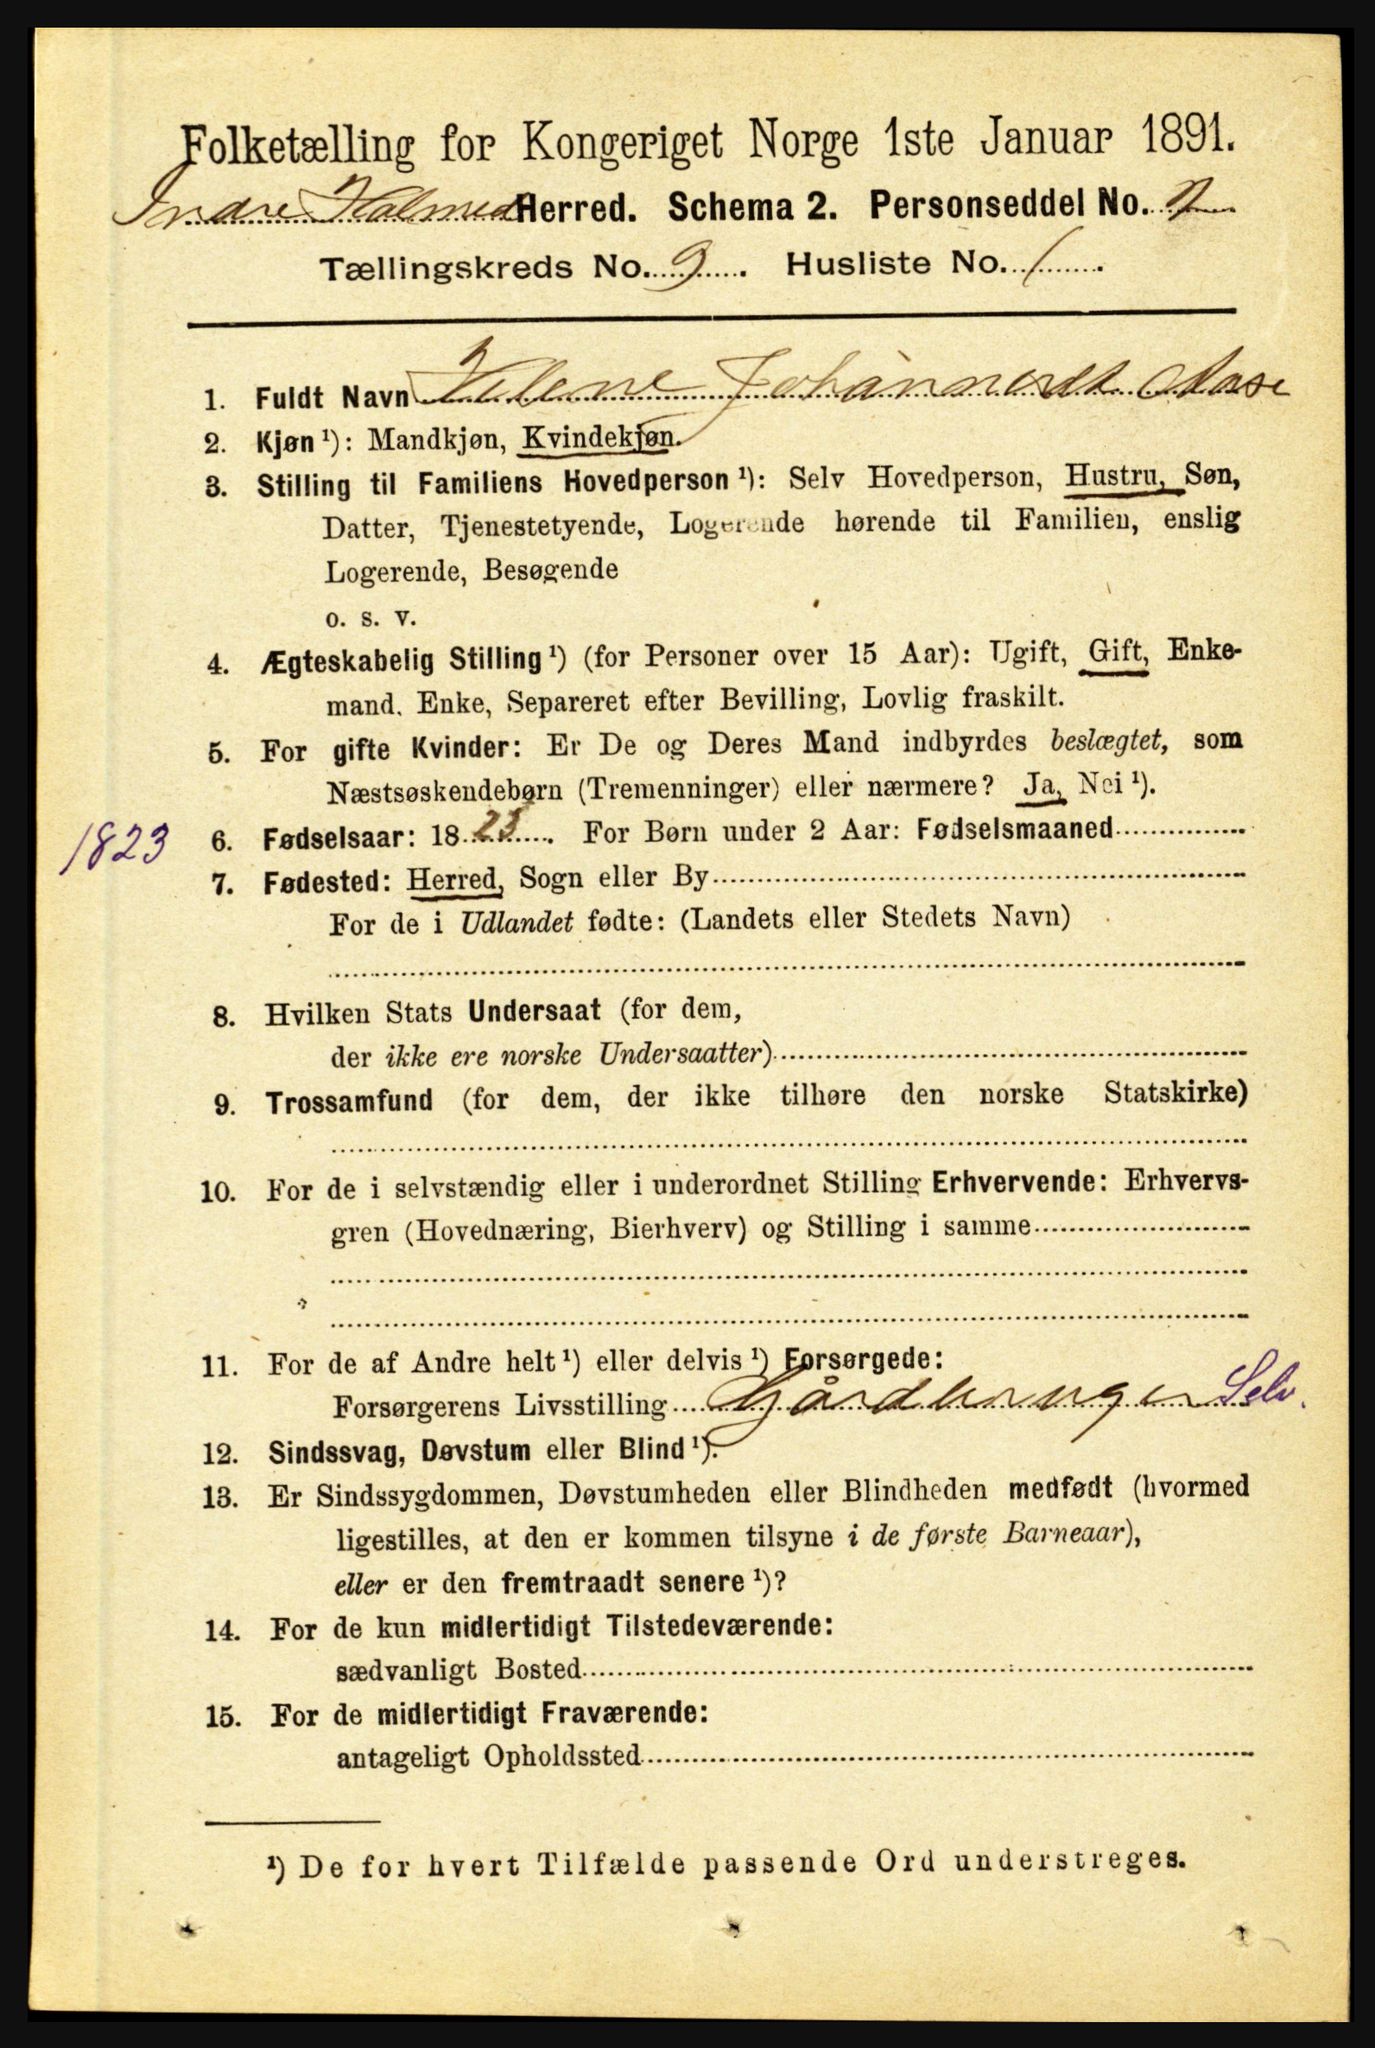 Folketælling for Kongeriget Norge 1ste Januar 1891.
Indre Holmedal Herred. Schema 2. Personseddel No. 2
Tællingskreds No. 9. Husliste No. 1.
1. Fuldt Navn Helene Johannesdt Aase
2. Kjøn ¹): Mandkjøn, Kvindekjøn.
3. Stilling til Familiens Hovedperson ¹): Selv Hovedperson, Hustru, Søn,
Datter, Tjenestetyende, Logerende hørende til Familien, enslig
Logerende, Besøgende
o. s. v.
4. Ægteskabelig Stilling ¹) (for Personer over 15 Aar): Ugift, Gift, Enke-
mand. Enke, Separeret efter Bevilling, Lovlig fraskilt.
5. For gifte Kvinder: Er De og Deres Mand indbyrdes beslægtet, som
Næstsøskendebørn (Tremenninger) eller nærmere? Ja, Nei ¹).
1823 6. Fødselsaar: 18 23. For Børn under 2 Aar: Fødselsmaaned
7. Fødested: Herred, Sogn eller By
For de i Udlandet fødte: (Landets eller Stedets Navn)
8. Hvilken Stats Undersaat (for dem,
der ikke ere norske Undersaatter)
9. Trossamfund (for dem, der ikke tilhøre den norske Statskirke)
10. For de i selvstændig eller i underordnet Stilling Erhvervende: Erhvervs-
gren (Hovednæring, Bierhverv) og Stilling i samme
11. For de af Andre helt ¹) eller delvis ¹) Forsørgede:
Forsørgerens Livsstilling Gårdbruger Selv.
12. Sindssvag, Døvstum eller Blind ¹).
13. Er Sindssygdommen, Døvstumheden eller Blindheden medfødt (hvormed
ligestilles, at den er kommen tilsyne i de første Barneaar),
eller er den fremtraadt senere ¹)?
14. For de kun midlertidigt Tilstedeværende:
sædvanligt Bosted
15. For de midlertidigt Fraværende:
antageligt Opholdssted
¹) De for hvert Tilfælde passende Ord understreges.